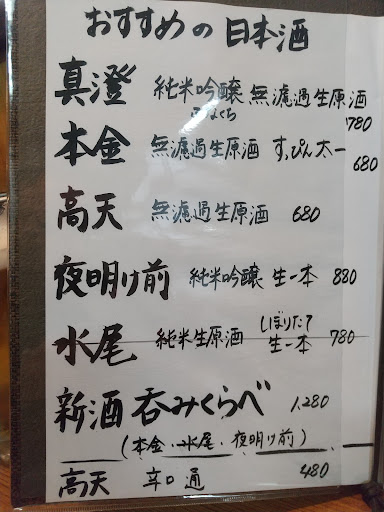 おすすめの日本酒
真澄 純米吟醸 無濾過生原酒
780
本金 無濾過生原酒 すっぴん太一 680
高天 無濾過生原酒 680
夜明け前 純米吟醸 生一本 880
水尾 純米生原酒 しぼりたて 生一本 780
新酒 呑みくらべ 1,280
(本金・水尾・夜明け前)
高天 辛口 通 480